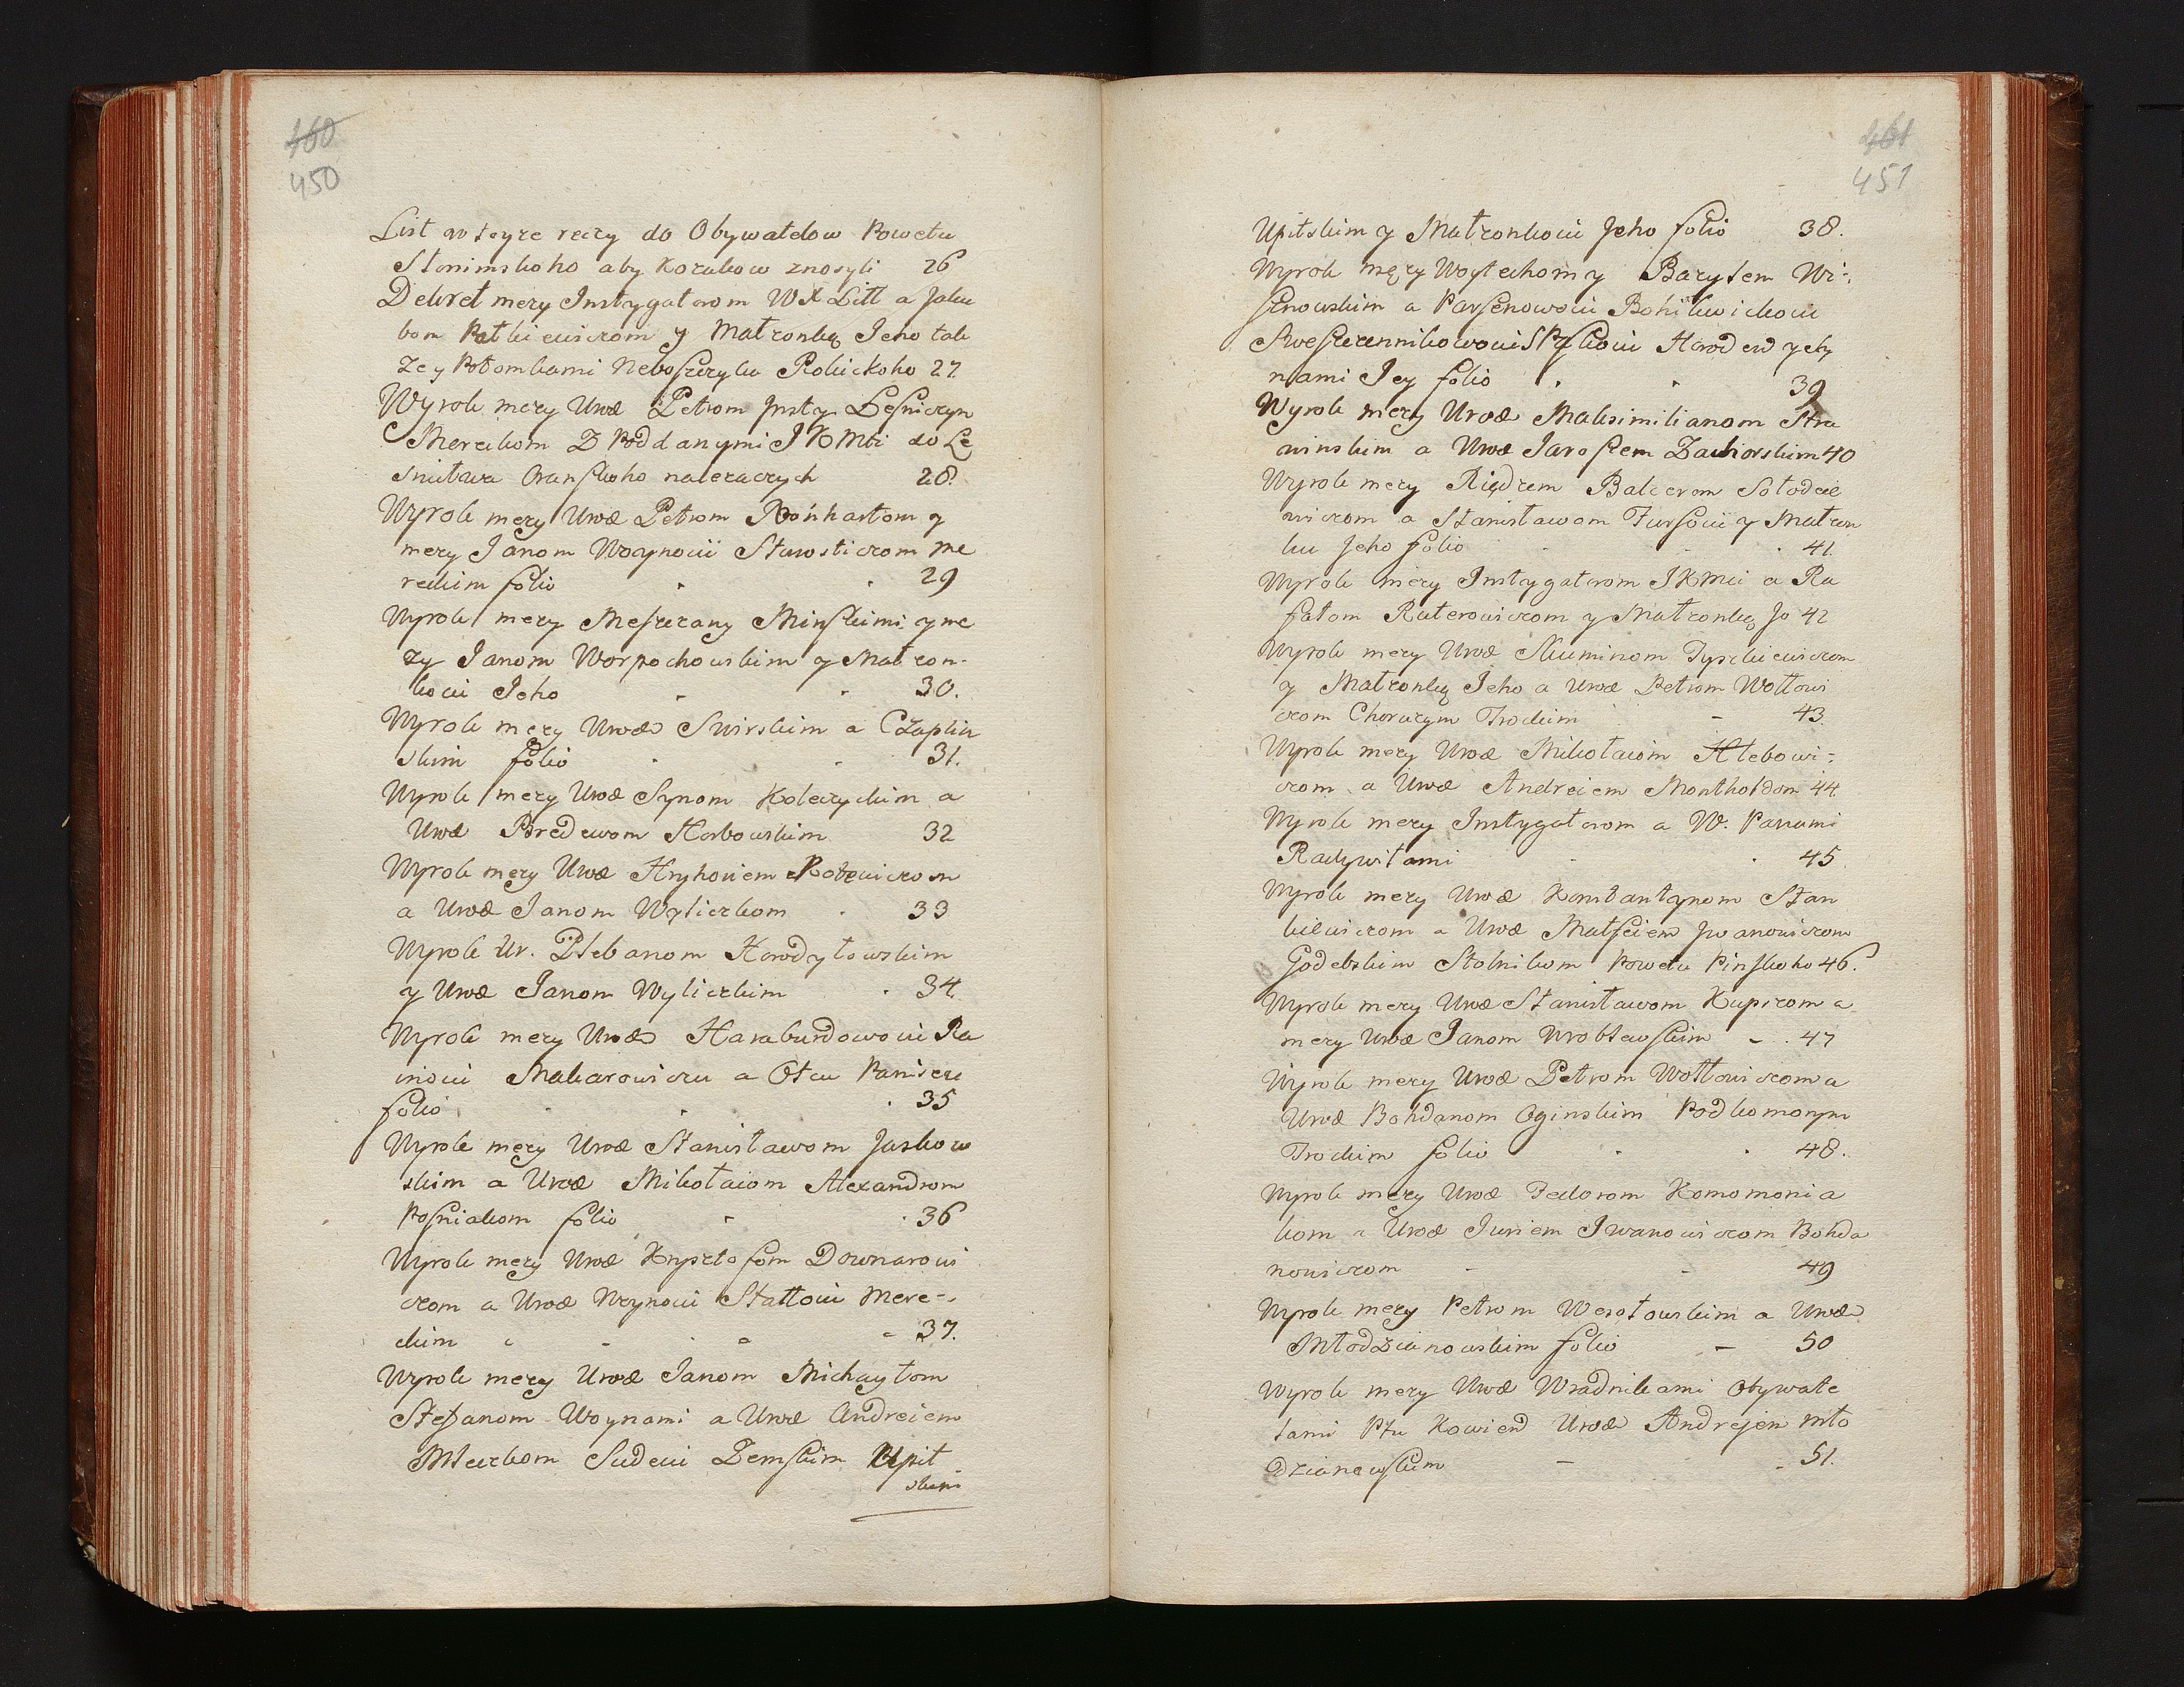 460
450
List w teyze reczy do Obywatelow Powetu
Stonimskoho aby Kozakow znosyli 26
Dekret mezy Instygatorom WX Litt a Jaku
bom Patkiewiczom y Matronkę Jeho tak
ze y Potomkami Neboszczyka Rokickoho 27.
Wyrok mezy Urod Petrom Insty Lesniczyn
Mereckom Z Poddanymi JKMti do Le
snictwa Oranskoho nalezaczych 28.
Wyrok mezy Urod Petrom Ronhartom y
mezy Janom Woynoiu Starosticzom Me
reckim folio 29
Wyrok mezy Meszczany Minskimi y me
zy Janom Worpochowskim y Matron-
koiu Jeho 30.
Wyrok mezy Urod Swirskim a Czaplin
skim folio 31.
Wyrok mezy Urod Synom Koleczyckim a
Urod Fredrom Horbowskim 32
Wyrok mezy Urod Hryhoriem Kotowiczom
a Urod Janom Wyliczkom 33
Wyrok Ur. Plebanom Horodytowskim
y Urod Janom Wyliczkim 34.
Wyrok mezy Urod Haraburdowoiu Ra
inoiu Makarowiczu a Otcu Panisere
folio 35
Wyrok mezy Urod Stanisławom Jaskow
skim a Urod Mikołaiom Alexandrom
Posniakom folio 36
Wyrok mezy Urod Krysztofom Downarowi
czom a Urod Woynoiu Stattoiu Mere-
ckim 37.
Wyrok mezy Urod Janom Michayłom
Stefanom Woynami a Urod Andreiem
Mleczkom Sudeiu Zemskim Upit
skim
461
451
Upitskim y Matronkoiu Jeho folio 38.
Wyrok męzy Woytechom y Barytem Wi-
sznowskim a Parfenowoiu Bohikwickoiu
Sweszczennikowoiu Horodew y
nami Jey folio 39
Wyrok mezy Urod Maksimilianom Stra
winskim a Urod Jaroszem Zauhorskim 40
Wyrok mezy Riędzem Balcerom Sołodcie
wiczom a Stanisławom Fursoiu y Matron
ku Jeho folio 41.
Wyrok mezy Instygatorom JKMci a Ra
fałom Ruterowiczom y Matronkę Jo 42
Wyrok mezy Urod Skuminom Tyszkiewiczom
y Matronkę Jeho a Urod Petrom Wołłowi
czom Chorużym Trockim 43.
Wyrok mezy Urod Mikołaiom Hlebowi-
czom a Urod Andreiem Montholdom 44.
Wyrok mezy Instygatorom a W. Panami
Radywiłami 45
Wyrok mezy Urod Konstantynom Stan
kiewiczom a Urod Matfeiem Jwanowiczom
Godebskim Stolnikom Powetu Pinskoho 46.
Wyrok mezy Urod Stanisławom Kupscom a
mezy Urod Janom Wroblewskim 47
Wyrok mezy Urod Petrom Wołłowiczom a
Urod Bohdanom Oginskim Podkomorym
Trockim folio 48.
Wyrok mezy Urod Fedorom Komomonia
kom a Urod Juriem Iwanowiczom Bohda
nowiczom 49
Wyrok mezy Petrom Wesołowskim a Urod
Młodzianowskim folio 50
Wyrok mezy Urod Wradnikami Obywate
lami Ptu Kowien Urod Andrejem Mło
dzianowskim 51.